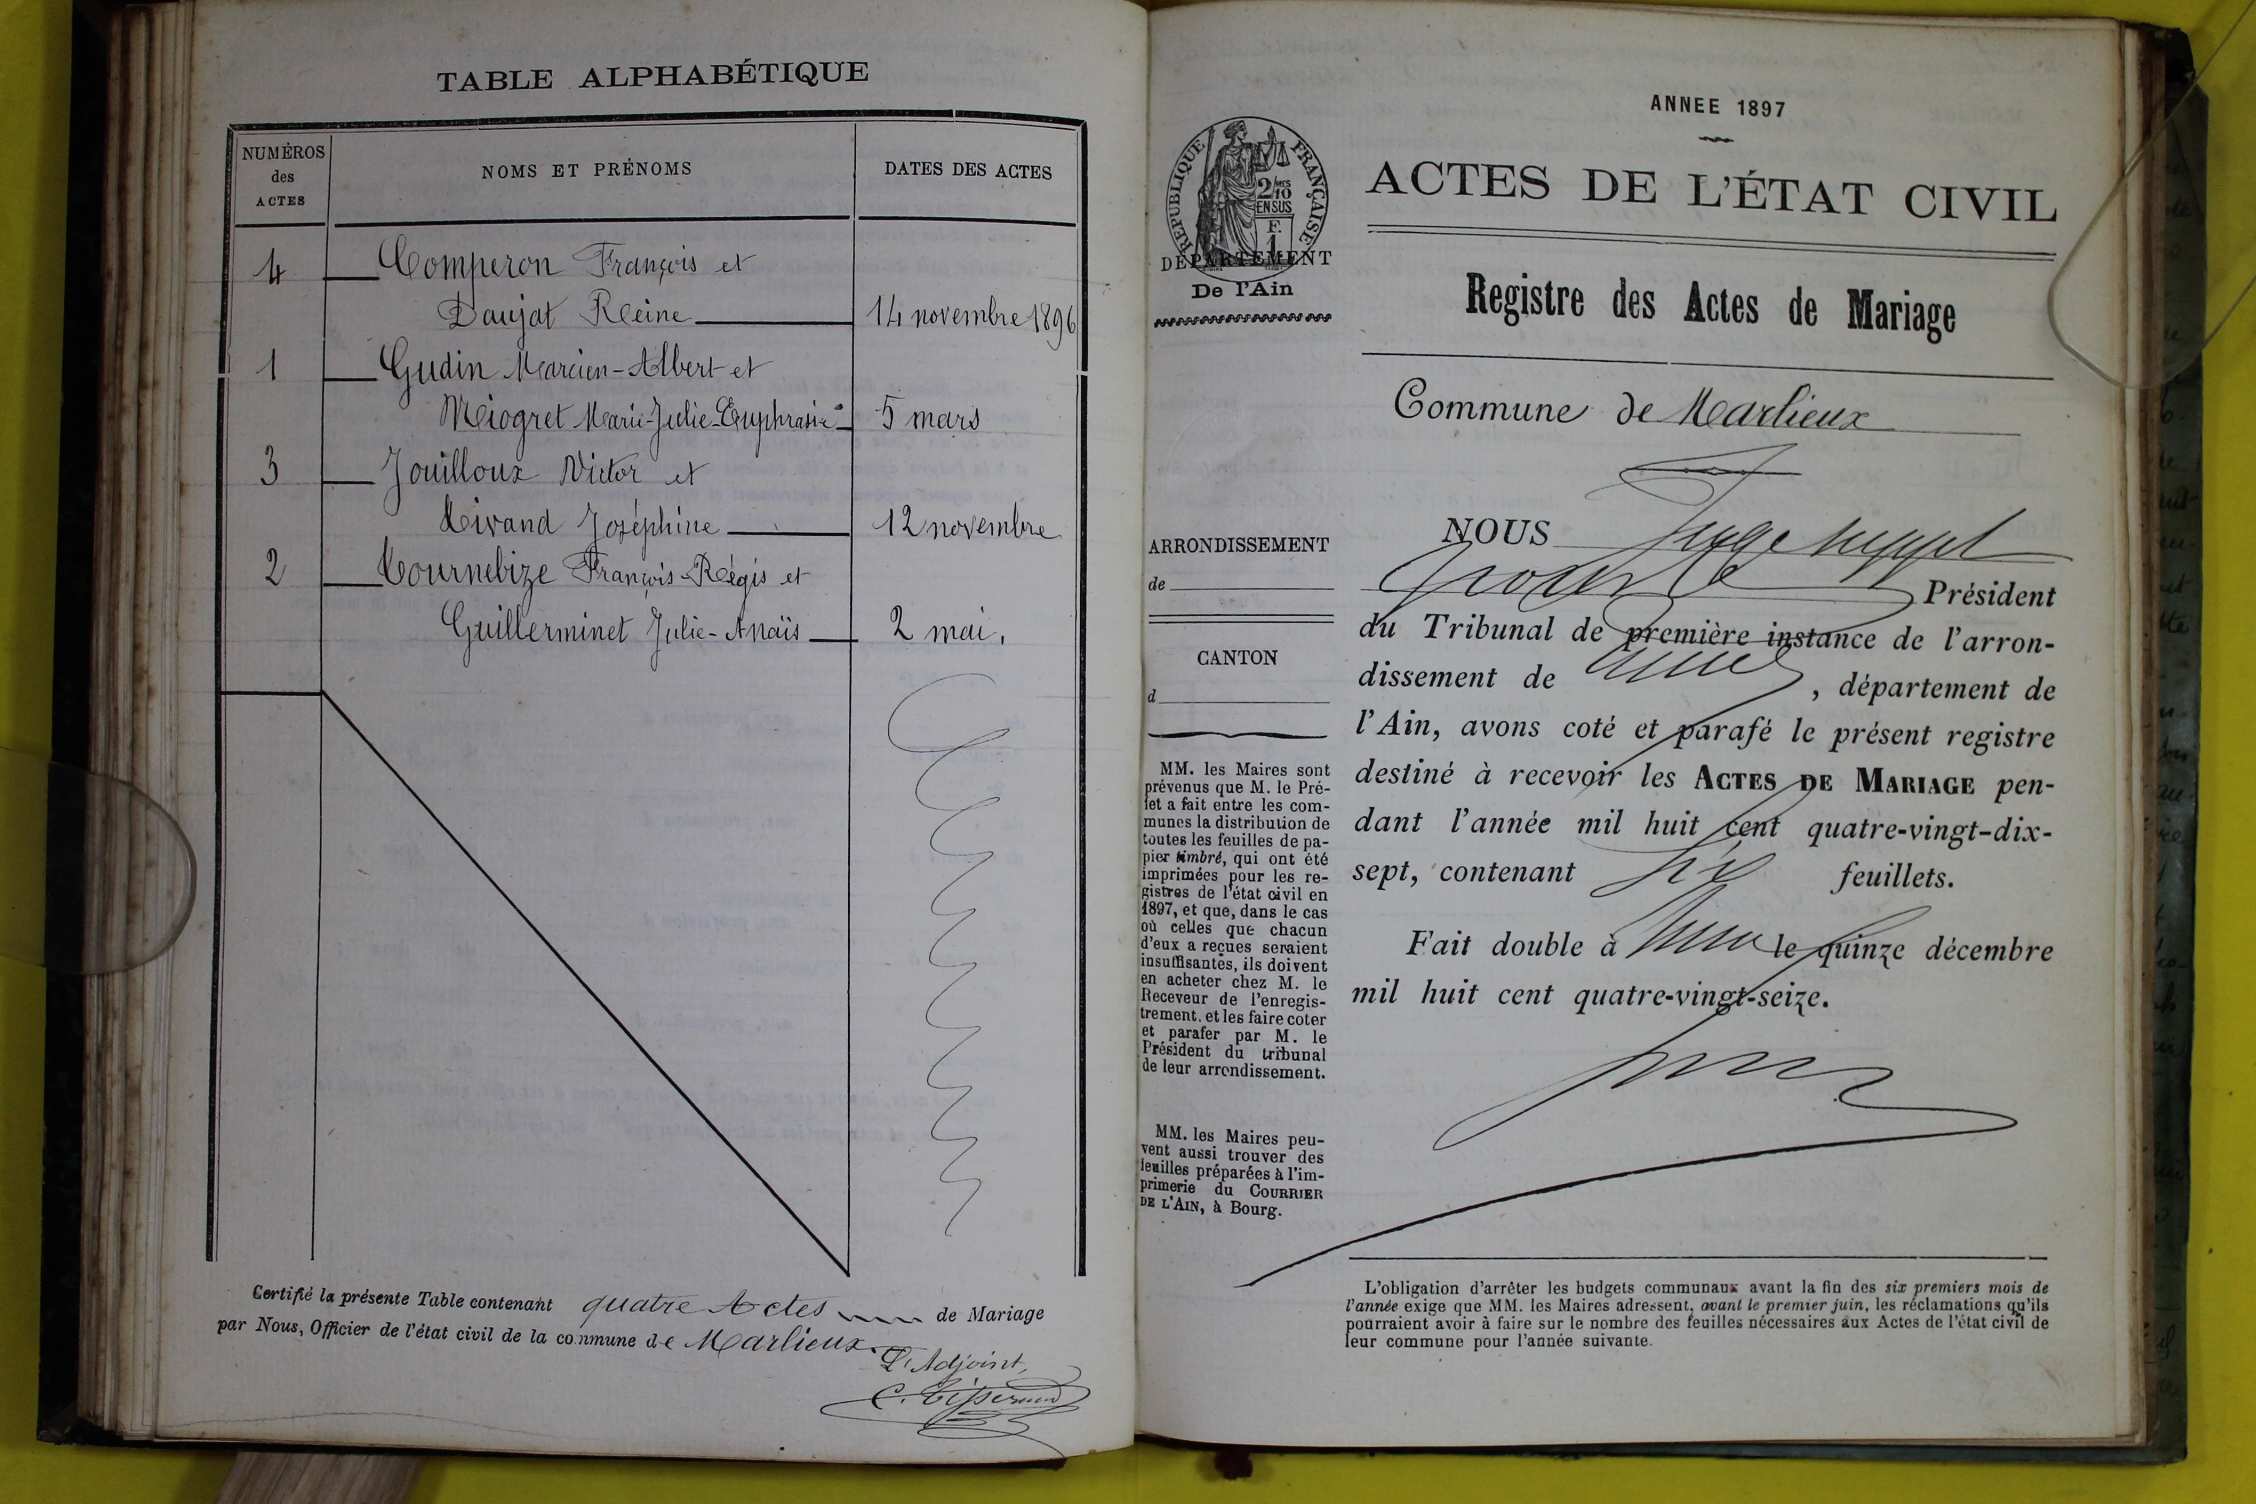 TABLE ALPHABÉTIQUE
NUMÉROS
des
ACTES
NOMS ET PRÉNOMS
DATES DES ACTES
4 Comperon François et
Daujat Reine 14 novembre 1896
1 Gudin Marcien-Albert et
Miogret Marie-Julie-Euphrasie 5 mars
3 Jouilloux Victor et
Livand Joséphine 12 novembre
2 Tournebize François-Régis et
Guillerminet Julie-Anaïs 2 mai.
Certifié la présente Table contenant quatre Actes de Mariage
par Nous, Officier de l'état civil de la commune de Marlieux.
L'Adjoint,
C. Tisserand
ANNEE 1897
RÉPUBLIQUE FRANÇAISE
2/10
EN SUS
F.
1
DÉPARTEMENT
De l'Ain
ACTES DE L'ÉTAT CIVIL
Registre des Actes de Mariage
Commune de Marlieux
ARRONDISSEMENT
de
CANTON
d
MM. les Maires sont
prévenus que M. le Pré-
fet a fait entre les com-
munes la distribution de
toutes les feuilles de pa-
pier timbré, qui ont été
imprimées pour les re-
gistres de l'état civil en
1897, et que, dans le cas
où celles que chacun
d'eux a reçues seraient
insuffisantes, ils doivent
en acheter chez M. le
Receveur de l'enregis-
trement. et les faire coter
et parafer par M. le
Président du tribunal
de leur arrondissement.
MM. les Maires peu-
vent aussi trouver des
feuilles préparées à l'im-
primerie du COURRIER
DE L'AIN, à Bourg.
NOUS Juge suppl
pour le Président
du Tribunal de première instance de l'arron-
dissement de , département de
l'Ain, avons coté et parafé le présent registre
destiné à recevoir les ACTES DE MARIAGE pen-
dant l'année mil huit cent quatre-vingt-dix-
sept, contenant six feuillets.
Fait double à le quinze décembre
mil huit cent quatre-vingt-seize.
L'obligation d'arrêter les budgets communaux avant la fin des six premiers mois de
l'année exige que MM. les Maires adressent, avant le premier juin, les réclamations qu'ils
pourraient avoir à faire sur le nombre des feuilles nécessaires aux Actes de l'état civil de
leur commune pour l'année suivante.